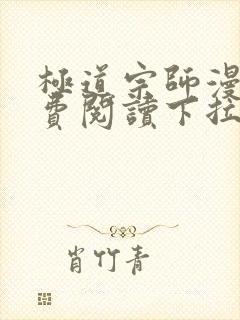 極道宗師漫
費閱讀下拉
肖竹青